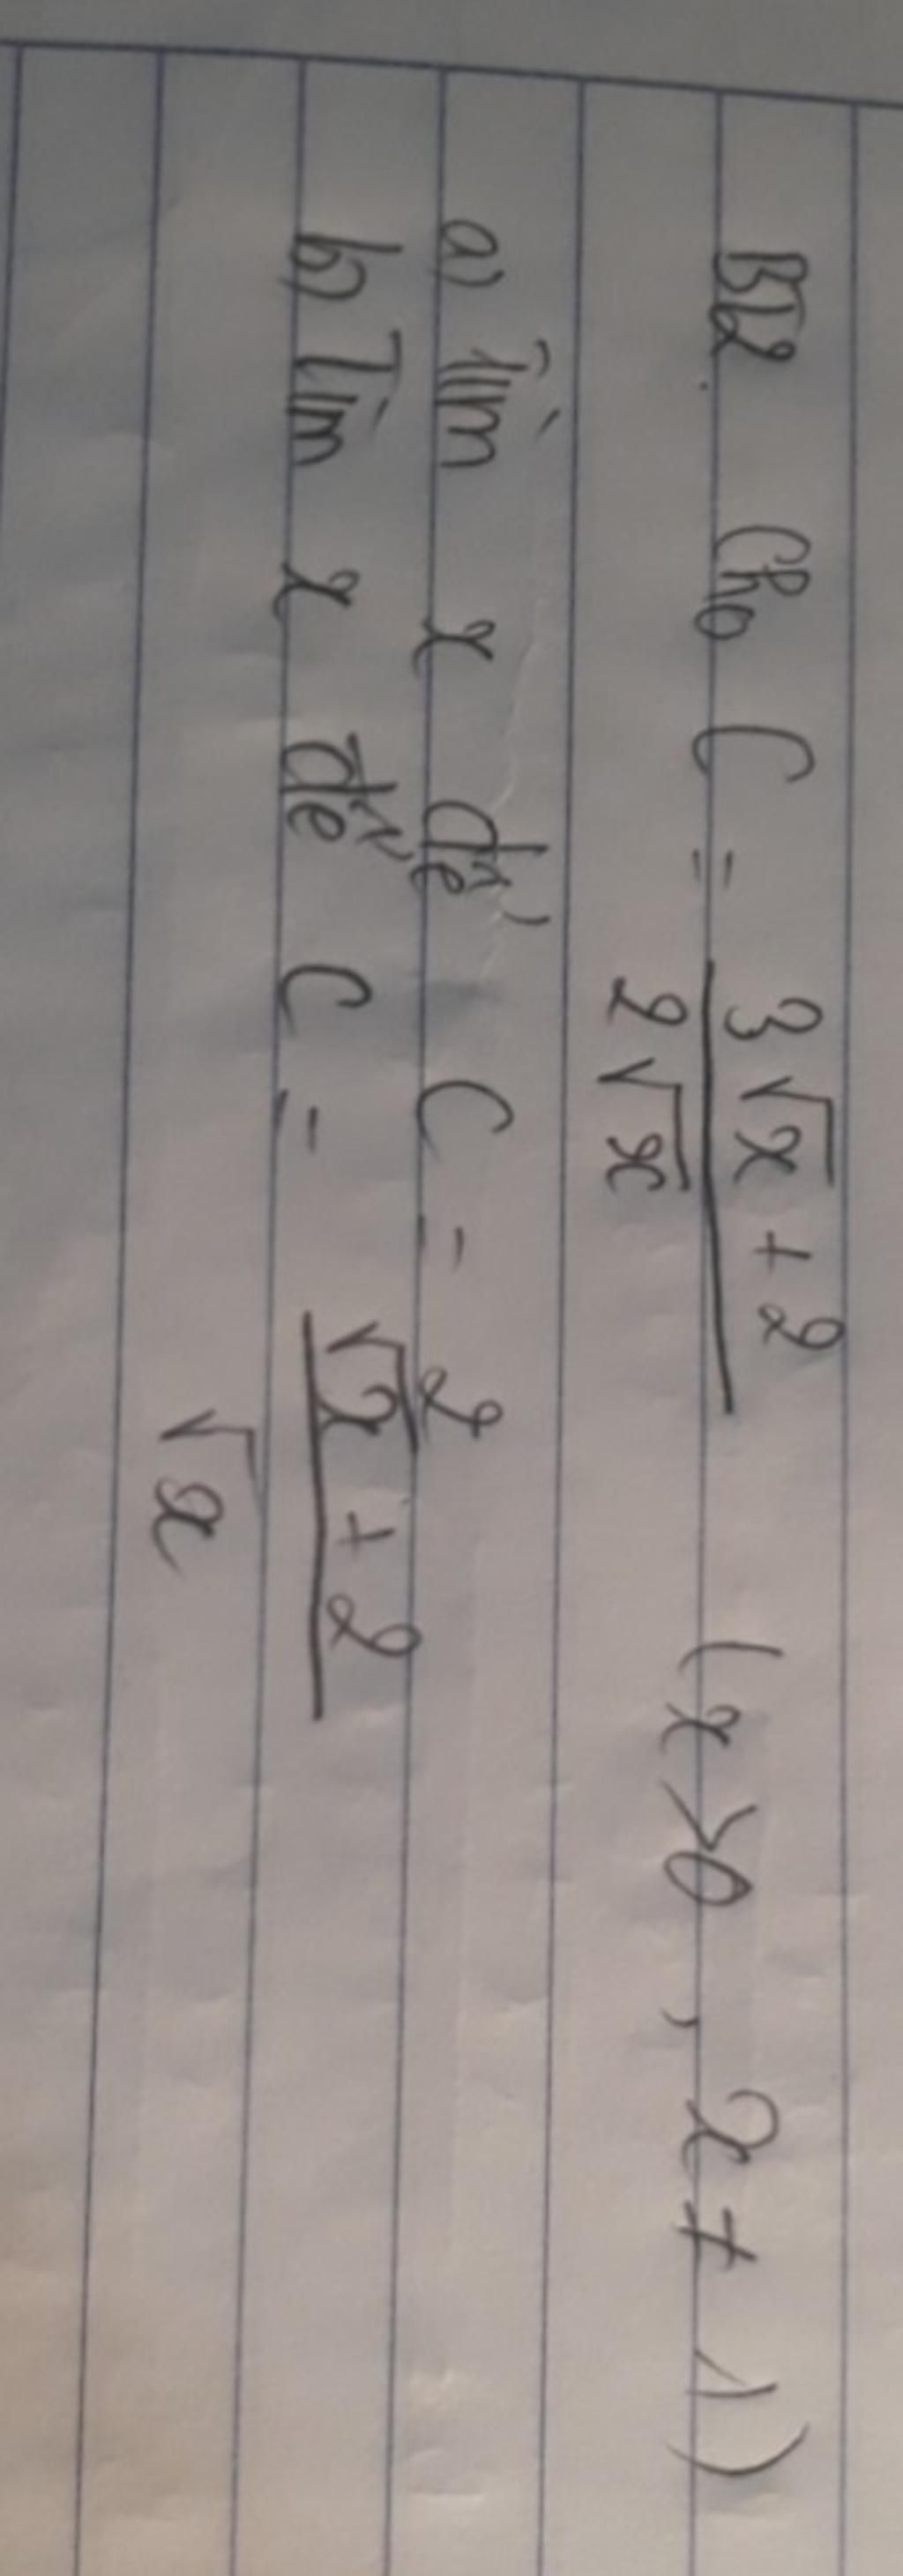 B12. Cho C = \frac{3\sqrt{x} + 2}{2\sqrt{x}} (x > 0, x ≠ 1)
a) Tìm x để C = 2
b) Tìm x để C = \frac{\sqrt{x} + 2}{\sqrt{x}}